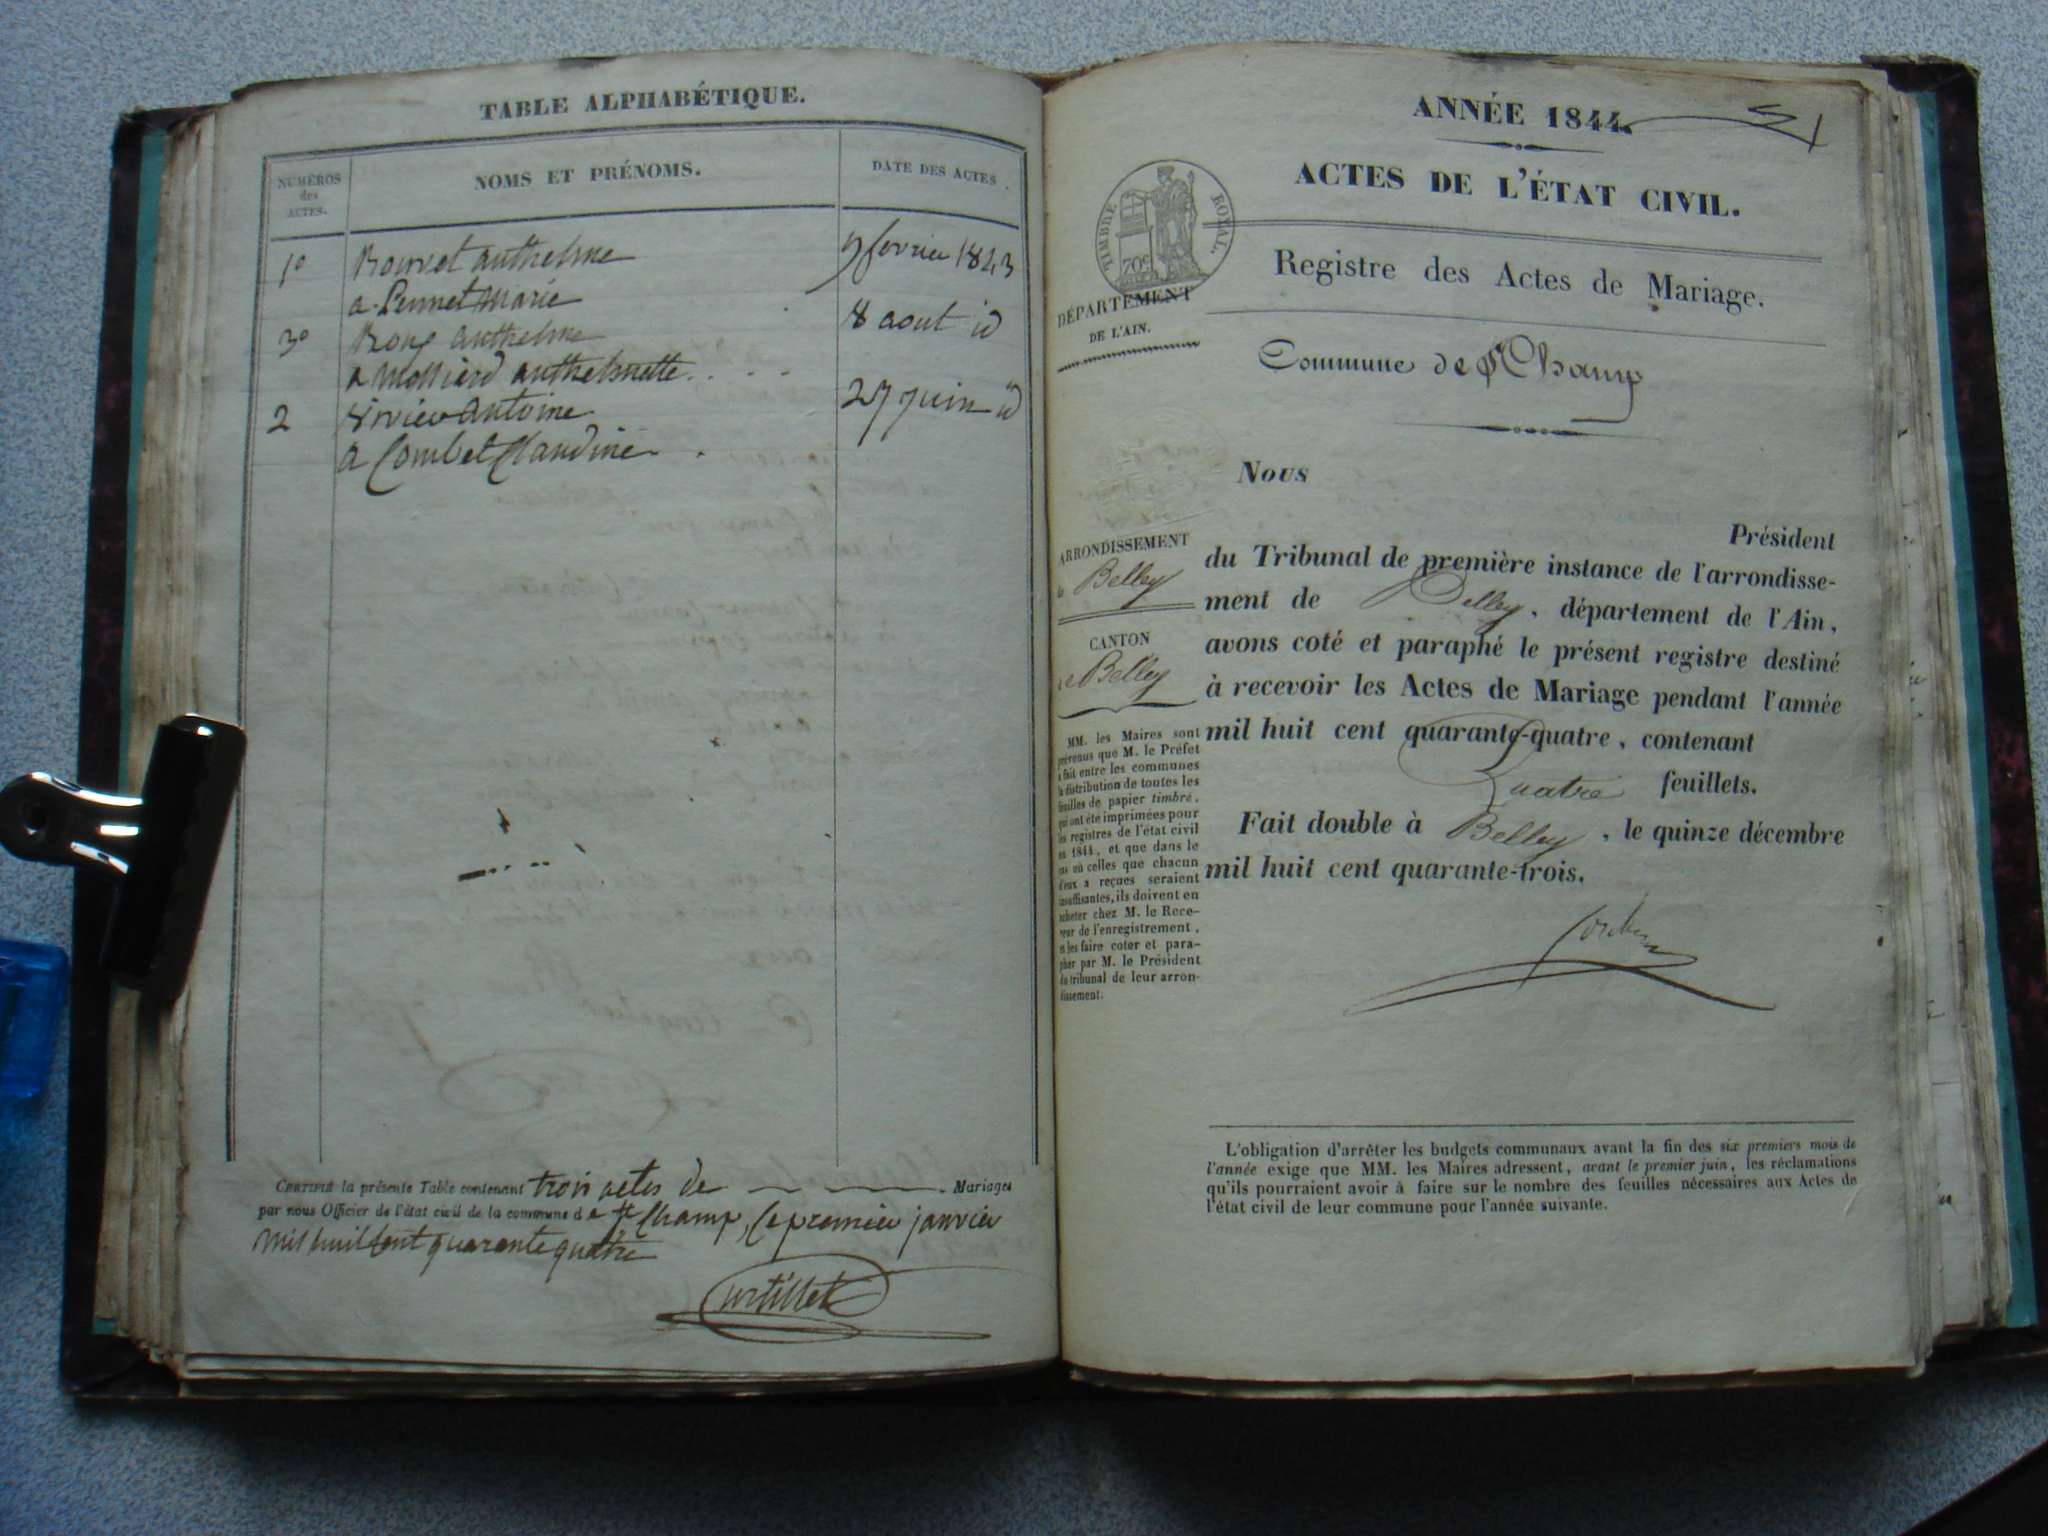 TABLE ALPHABÉTIQUE.
NUMÉROS
des
ACTES.
NOMS ET PRÉNOMS.
DATE DES ACTES.
1º Bouvet anthelme 9 fevrier 1843
a Pennet Marie
3º Roux anthelme 8 aout id
a Mollierd anthelmette
2 Sirvieu antoine 27 juin id
a Combet Claudine
CERTIFIÉ la présente Table contenant trois actes de Mariages
par nous Officier de l'état civil de la commune de St Champ, le premier janvier
mil huit Cent quarante quatre
Curtillet
ANNÉE 1844.
ACTES DE L'ÉTAT CIVIL.
TIMBRE ROYAL.
70c
Registre des Actes de Mariage.
DÉPARTEMENT
DE L'AIN.
Commune de St Champ
ARRONDISSEMENT
de Belley
CANTON
de Belley
MM. les Maires sont
prévenus que M. le Préfet
a fait entre les communes
la distribution de toutes les
feuilles de papier timbré,
qui ont été imprimées pour
les registres de l'état civil
en 1844, et que dans le
cas où celles que chacun
d'eux a reçues seraient
insuffisantes, ils doivent en
acheter chez M. le Rece-
veur de l'enregistrement,
et les faire coter et para-
pher par M. le Président
du tribunal de leur arron-
dissement.
Nous
Président
du Tribunal de première instance de l'arrondisse-
ment de Belley, département de l'Ain,
avons coté et paraphé le présent registre destiné
à recevoir les Actes de Mariage pendant l'année
mil huit cent quarante-quatre, contenant
Quatre feuillets.
Fait double à Belley, le quinze décembre
mil huit cent quarante-trois.
L'obligation d'arrêter les budgets communaux avant la fin des six premiers mois de
l'année exige que MM. les Maires adressent, avant le premier juin, les réclamations
qu'ils pourraient avoir à faire sur le nombre des feuilles nécessaires aux Actes de
l'état civil de leur commune pour l'année suivante.